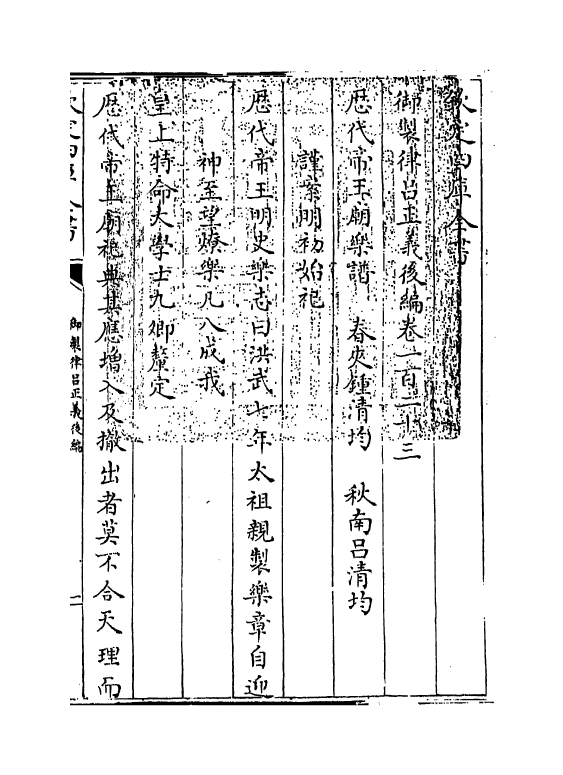 欽定四庫全書
御製律吕正義後編卷一百二十三
歴代帝王廟樂譜 春夾鍾清均 秋南吕清均
謹案明初始祀
歴代帝王明史樂志曰洪武七年太祖親製樂章自迎
神至望燎樂凡八成我
皇上特命大學士九卿釐定
歴代帝王廟祀典其應增入及撤出者莫不合天理而
欽定四庫全書
御製律吕正義後編
一